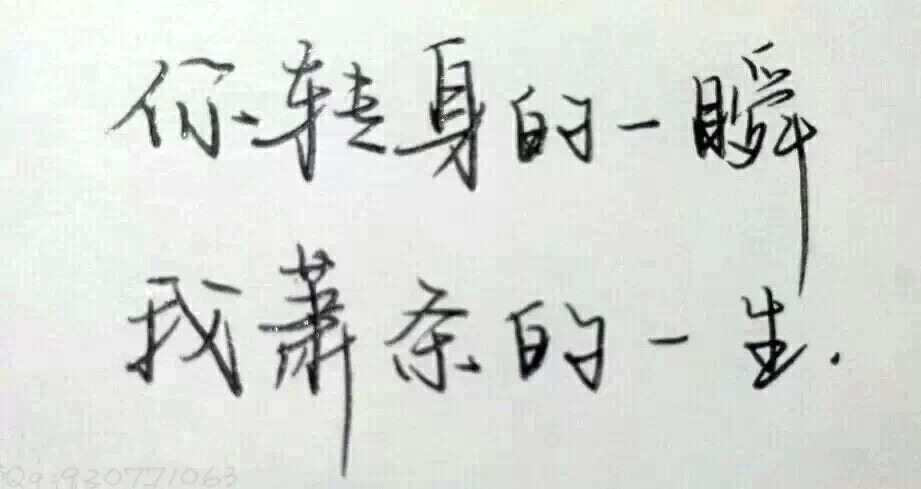 你转身的一瞬
我萧条的一生.
Qq:930771063